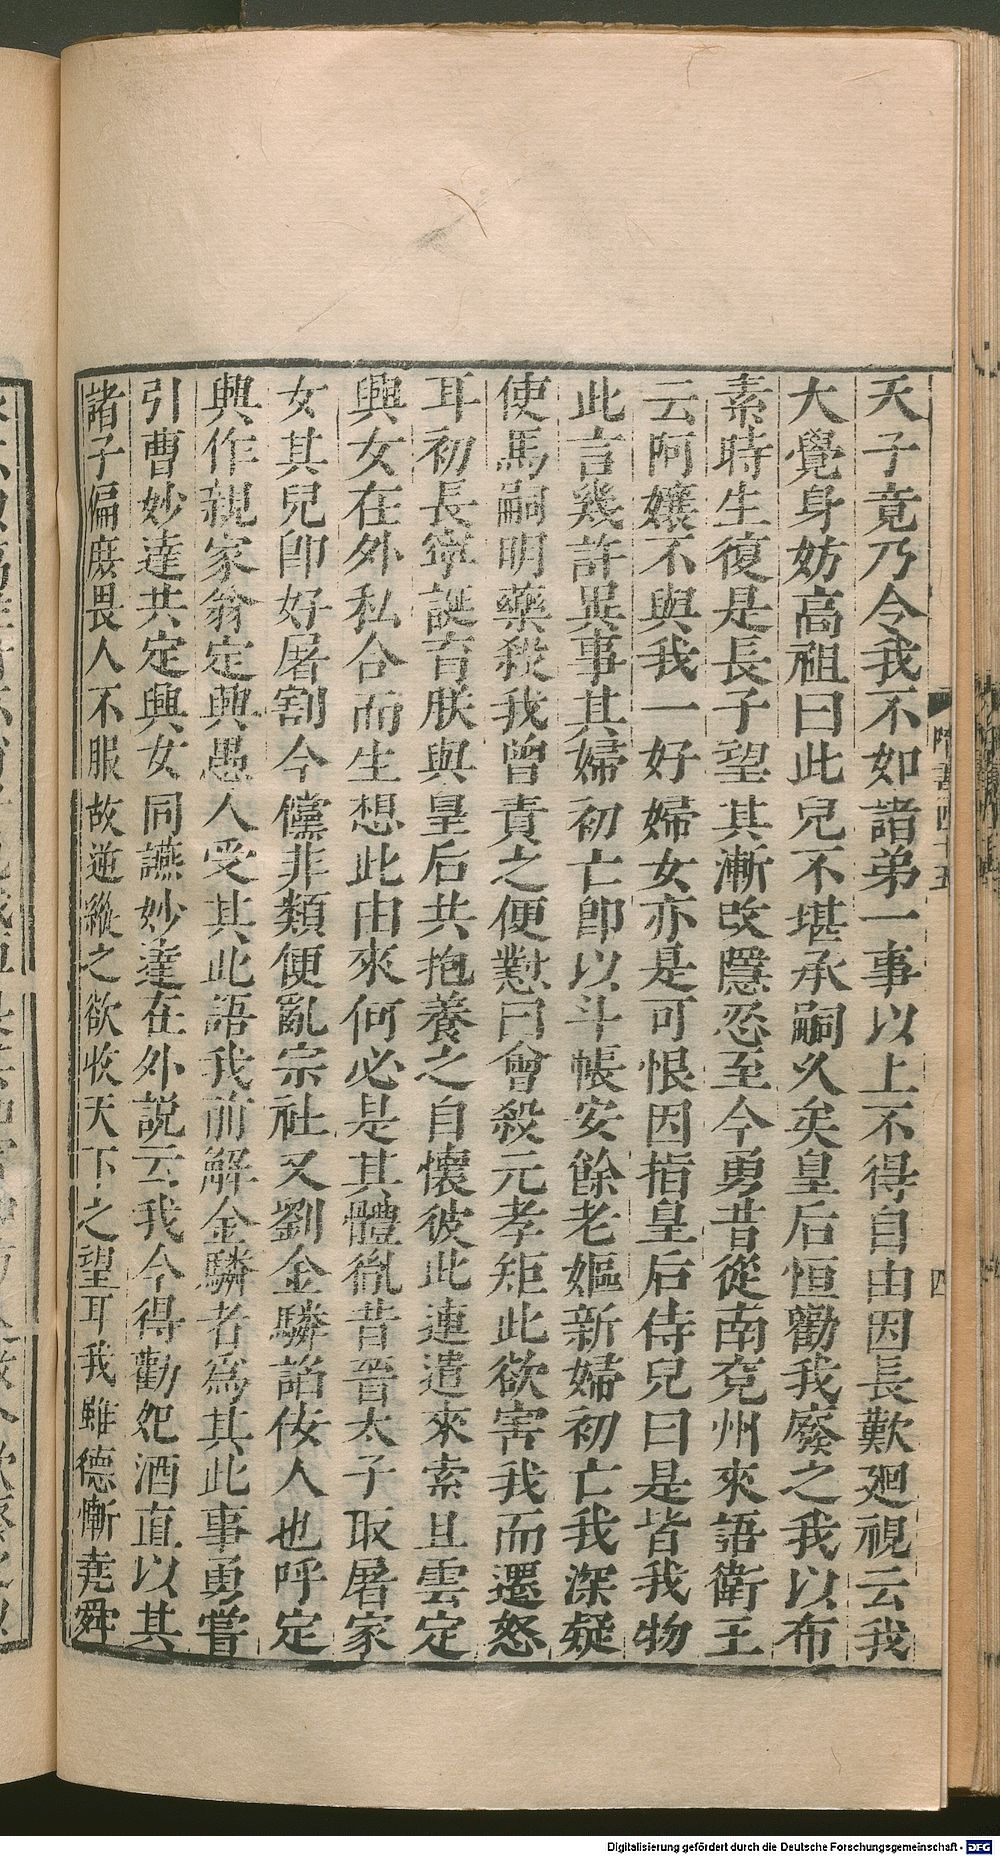 天子竟乃令我不如諸弟一事以上不得自由因長歎廻視云我
大覺身妨高祖曰此兒不堪承嗣久矣皇后恒勸我廢之我以布
素時生復是長子望其漸改隱忍至今勇昔從南兖州來語衛王
云阿孃不與我一好婦女亦是可恨因指皇后侍兒曰是皆我物
此言幾許異事其婦初亡即以斗帳安餘老嫗新婦初亡我深疑
使馬嗣明藥殺我曾責之便懟曰會殺元孝矩此欲害我而遷怒
耳初長寧誕育朕與皇后共抱養之自懷彼此連遣來索且雲定
興女在外私合而生想此由來何必是其體胤昔晉太子取屠家
女其兒即好屠割今儻非類便亂宗社又劉金驎諂佞人也呼定
興作親家翁定興愚人受其此語我前解金驎者爲其此事勇嘗
引曹妙達共定興女同讌妙達在外説云我今得勸妃酒直以其
諸子偏庶畏人不服故逆縱之欲收天下之望耳我雖德慚堯舜
隋書四十五
四
Digitalisierung gefördert durch die Deutsche Forschungsgemeinschaft - DFG